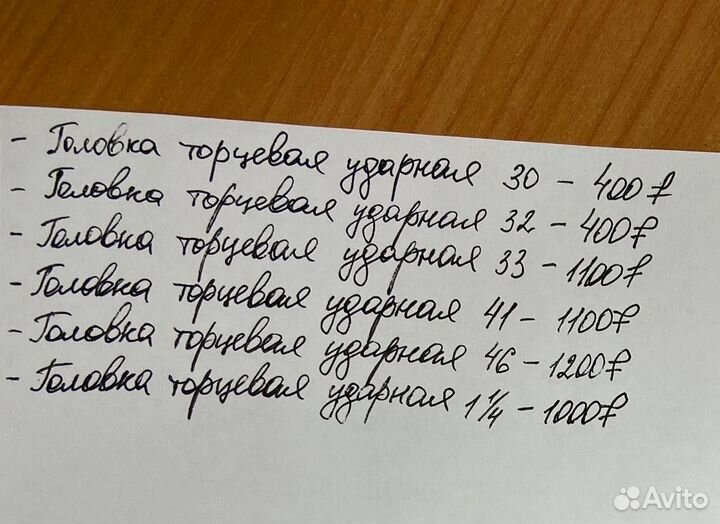 - Головка торцевая ударная 30 - 400₽
- Головка торцевая ударная 32 - 400₽
- Головка торцевая ударная 33 - 1100₽
- Головка торцевая ударная 41 - 1100₽
- Головка торцевая ударная 46 - 1200₽
- Головка торцевая ударная 1 1/4 - 1000₽
Avito